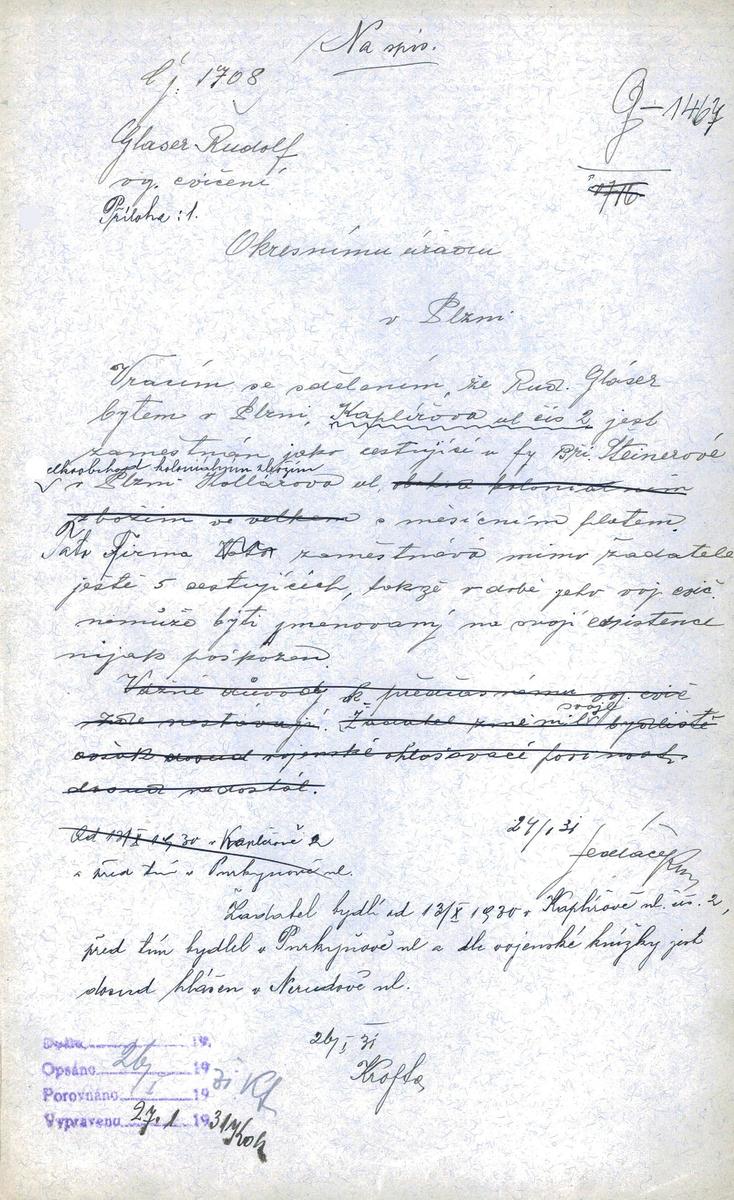 Na spis.
Čj. 1708
G-1467
Glaser Rudolf
voj. cvičení
1716
Příloha: 1.
Okresnímu úřadu
v Plzni.
Vracím se sdělením, že Rud. Gláser
bytem v Plzni, Kaplířova ul čís 2 jest
zaměstnán jako cestující u fy Bří. Steinerové
velkoobchod koloniálním zbožím
v Plzni Hollárova ul. koloniálním
zbožím ve velkém s měsíčním platem.
Tato Firma zaměstnává mimo žadatele
ještě 5 cestujících, takže v době jeho voj cvič.
nemůže býti jmenovaný na svojí existenci
nijak poškozen.
Vážné důvody k předčasnému voj. cvič
zde nestávají. Žadatel změnil svoje bydliště
avšak dosud vojenské ohlašovací povinnosti
dosud nedostál.
Od 13/X 1930 v Kaplířově 2
a před tím v Purkyňově ul.
24/I 31
Sedláček
Žadatel bydlí od 13/X 1930 v Kaplířově ul. čís. 2,
před tím bydlel v Purkyňově ul a dle vojenské knížky jest
dosud hlášen v Nerudově ul.
26/I 31
Krofta
Došlo 19
Opsáno 26/I 1931 Kf
Porovnáno 19
Vypraveno 27.1 1931 Kok